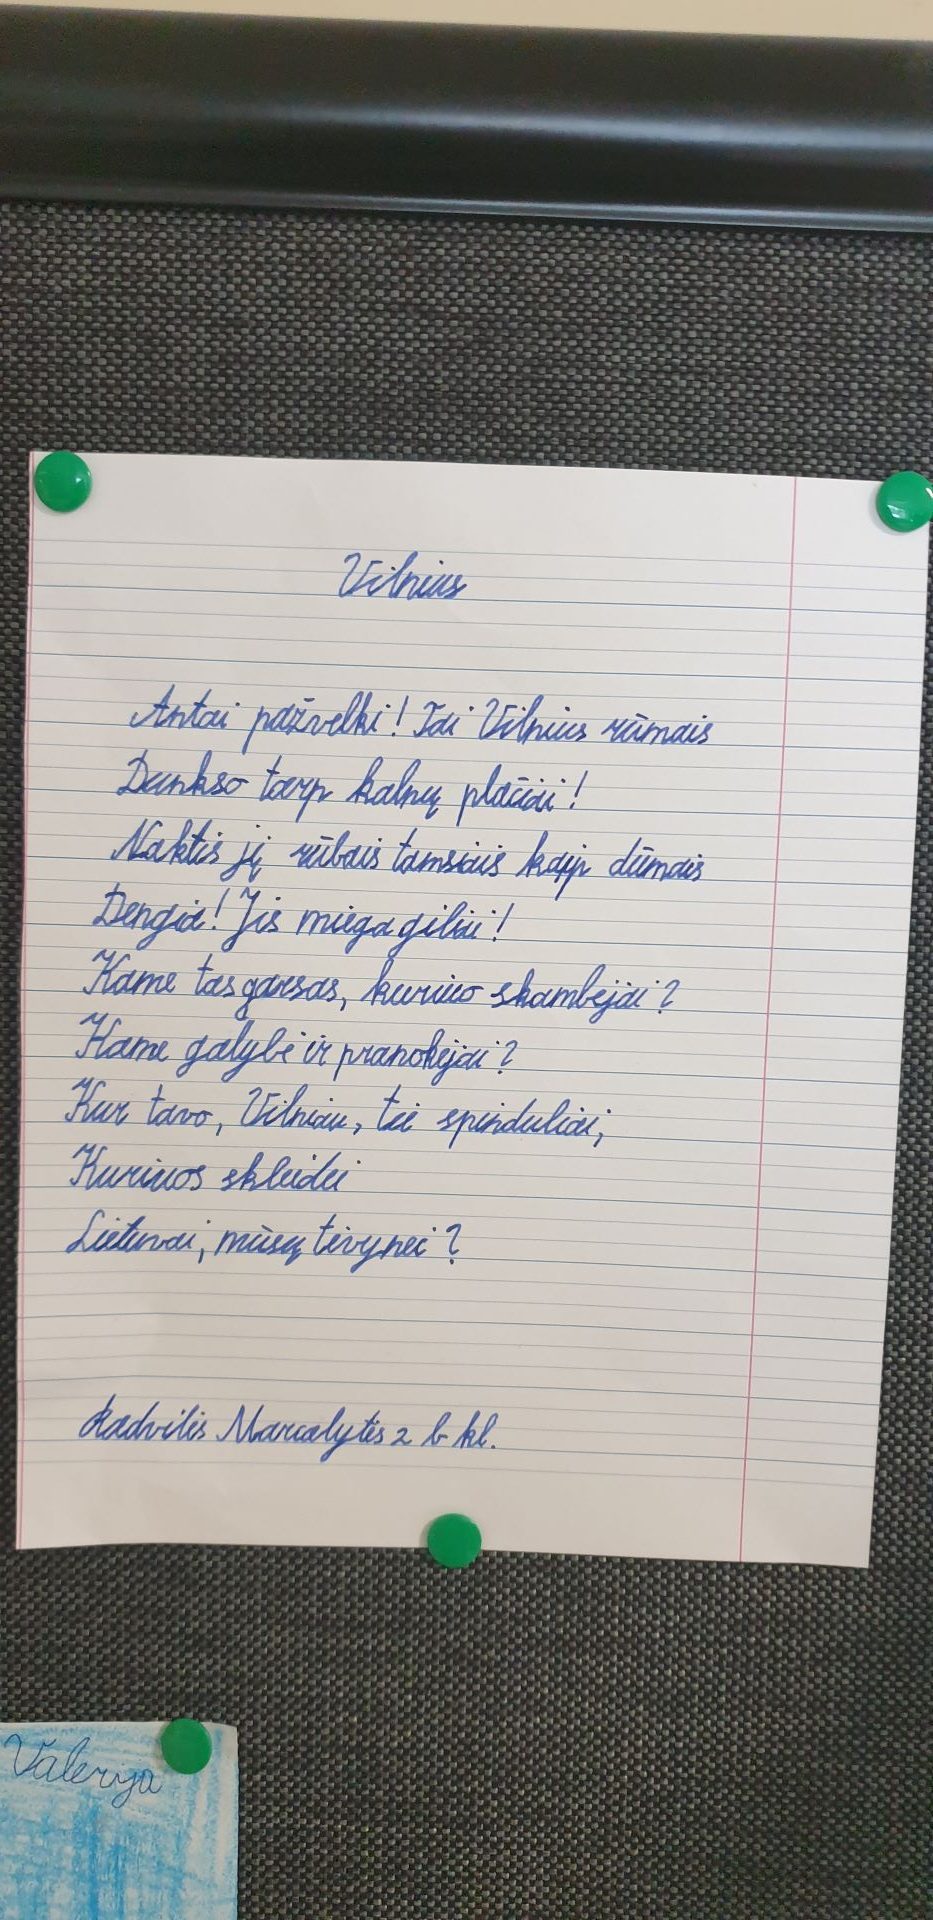 Vilnius
Antai pažvelki! Tai Vilnius rūmais
Dunkso tarp kalnų plačiai!
Naktis jį rūbais tamsiais kaip dūmais
Dengia! Jis miega giliai!
Kame tas garsas, kuriuo skambėjai?
Kame galybė ir pranokėjai?
Kur tavo, Vilniau, tie spinduliai,
Kuriuos skleidei
Lietuvai, mūsų tėvynei?
Radvilės Marcalytės 2 b kl.
Valerija